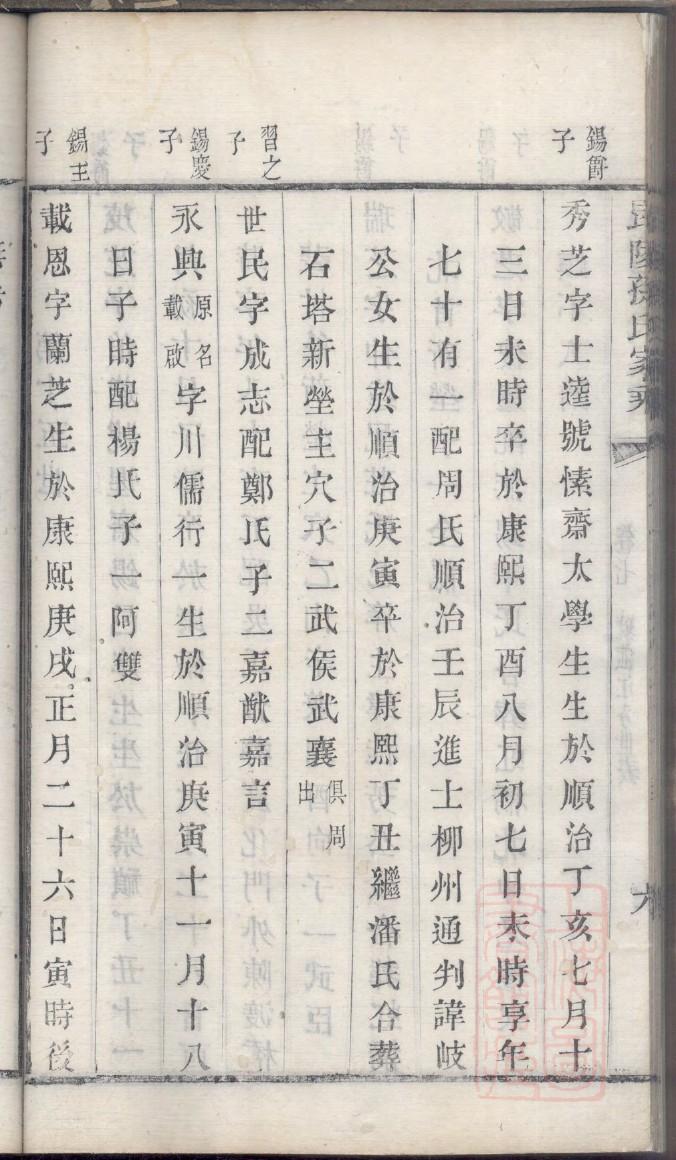 毘陵孫氏家乘
六
錫爵子
秀芝字士逵號愫齋太學生生於順治丁亥七月十
三日未時卒於康熙丁酉八月初七日未時享年
七十有一配周氏順治壬辰進士柳州通判諱岐
公女生於順治庚寅卒於康熙丁丑繼潘氏合葬
石塔新塋主穴子二武侯武襄俱周出
習之子
世民字成志配鄭氏子二嘉猷嘉言
錫慶子
永興原名載啟字川儒行一生於順治庚寅十一月十八
日子時配楊氏子一阿雙
錫玉子
載恩字蘭芝生於康熙庚戌正月二十六日寅時後